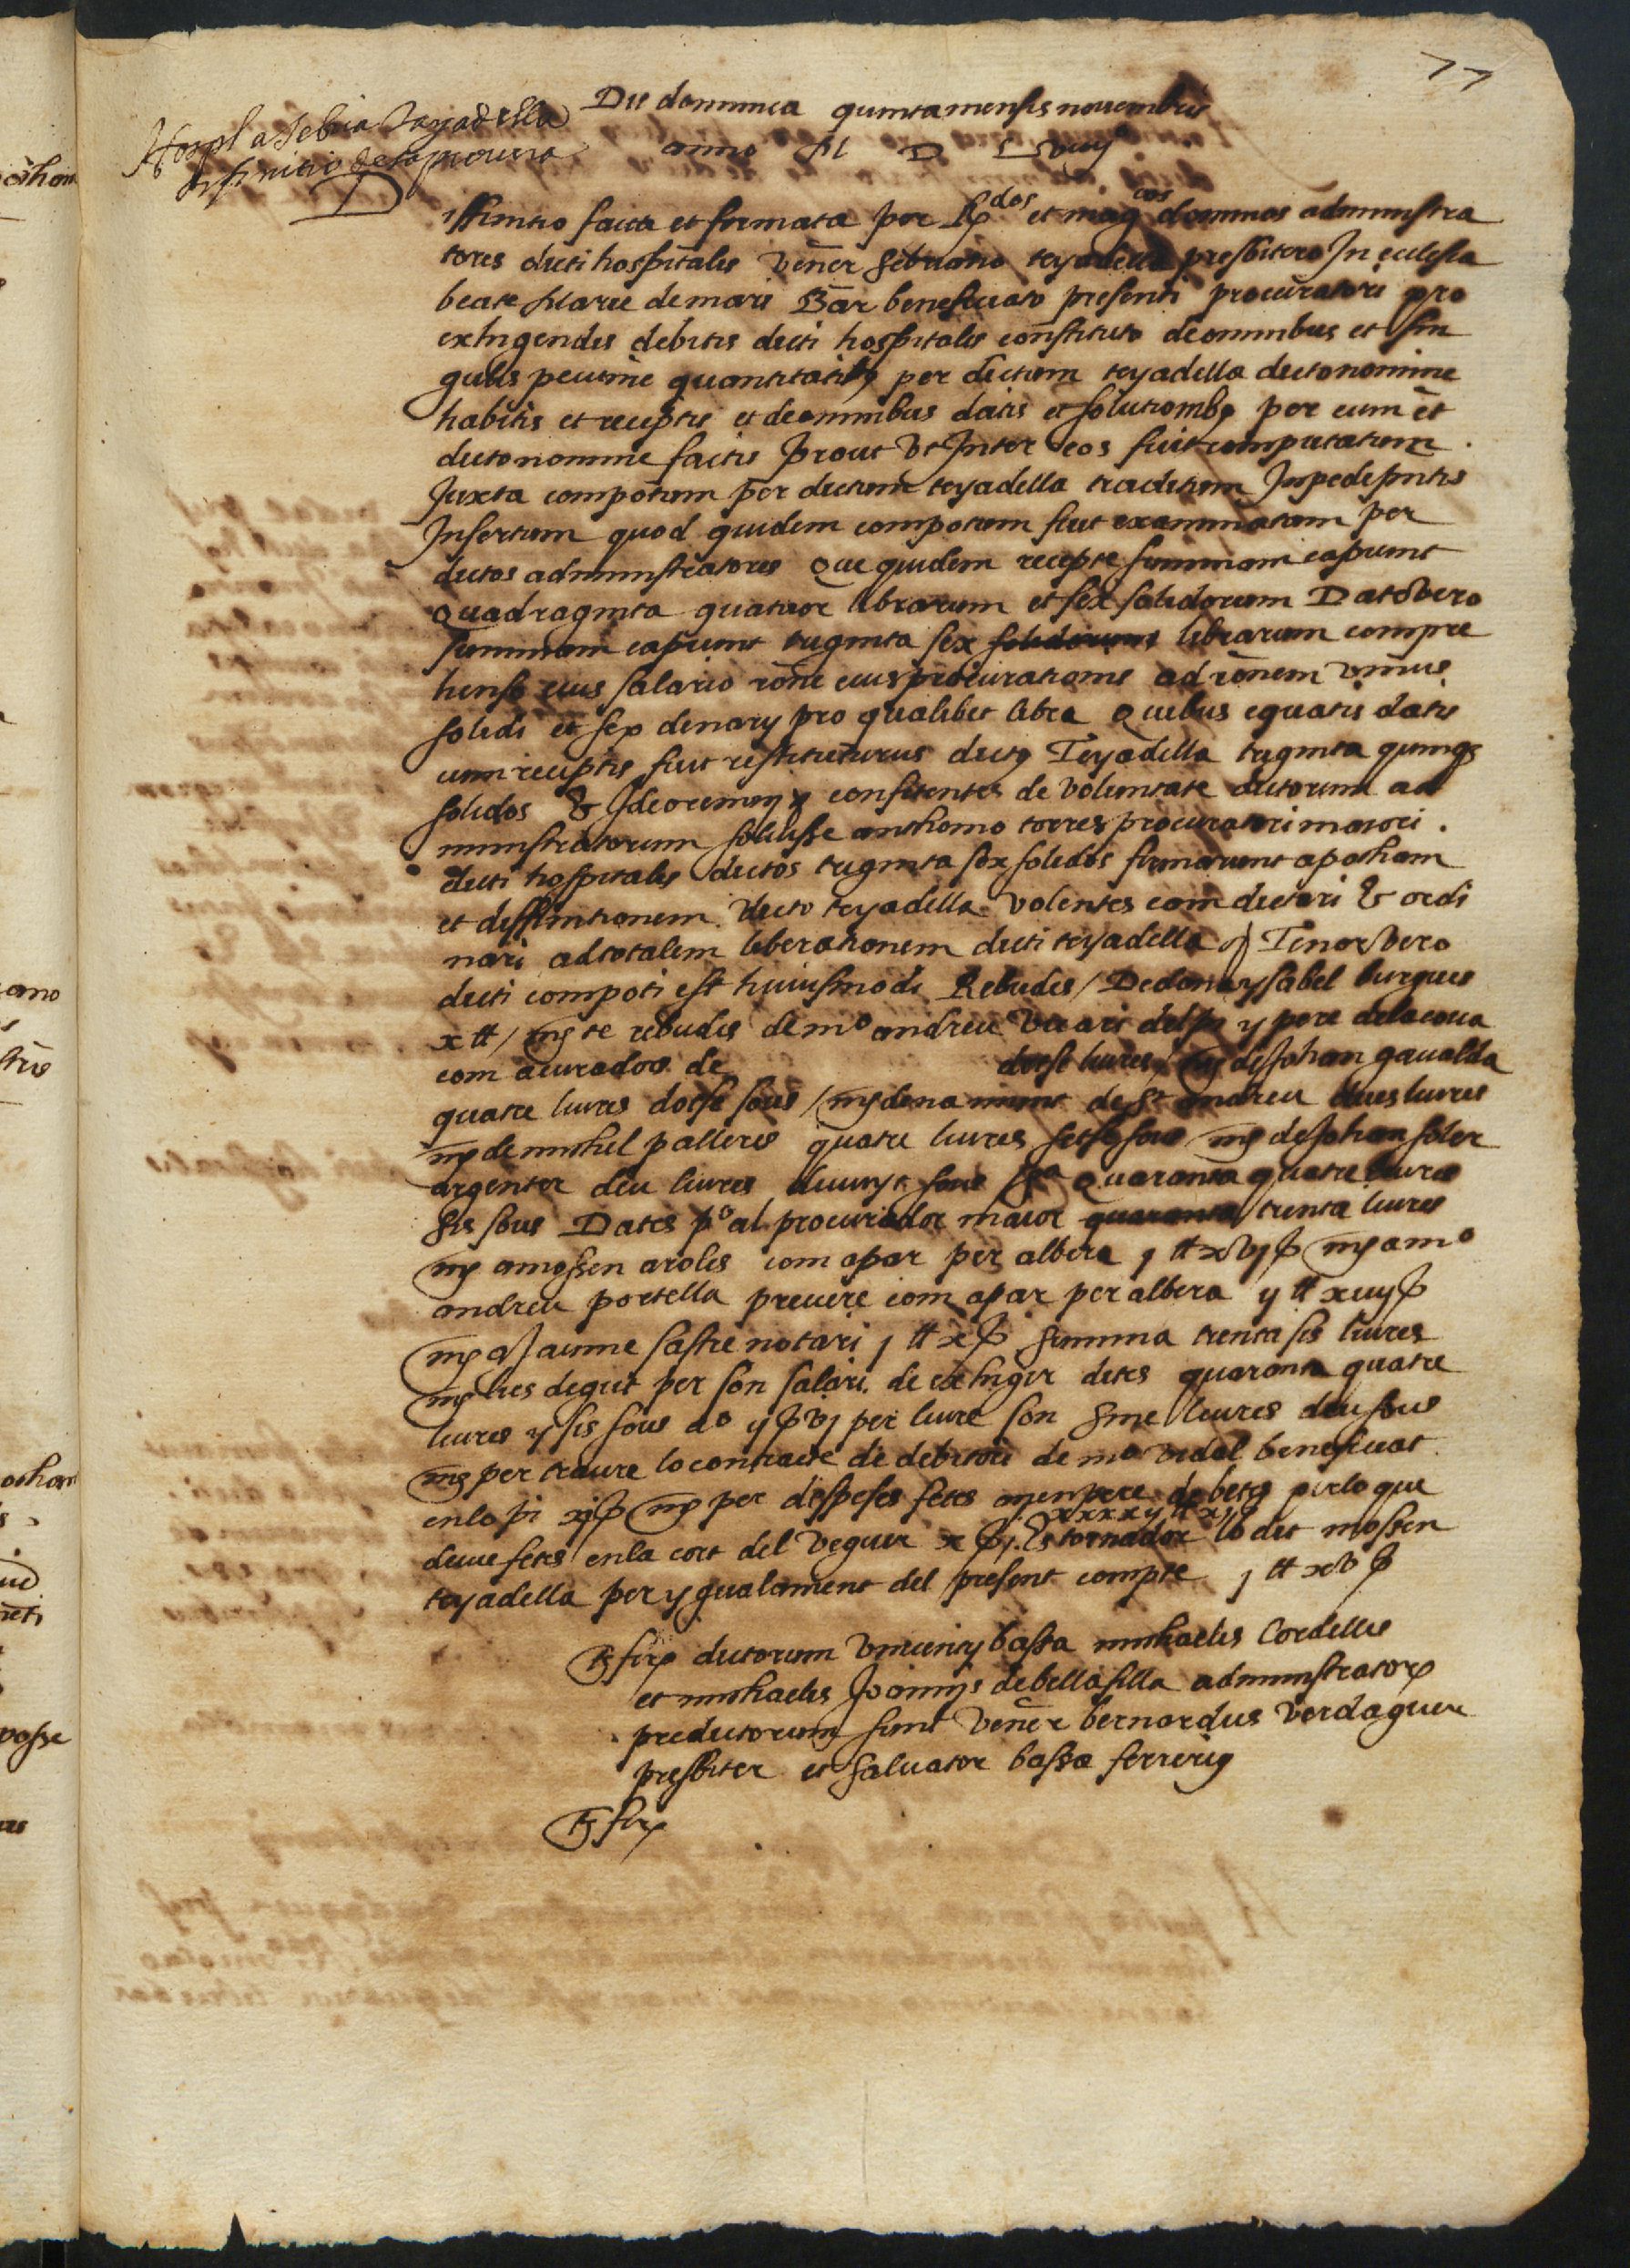 77
Die dominica quinta mensis novembris
anno M D Lviiij
Hospl a Sebria Tayadella
diffinitio de la procura
Diffinitio facta et firmata per Rdos et magcos dominos administra
tores dicti hospitalis Vener Sebriano teyadella presbitero In ecclesia
beate Marie de mari Bar beneficiato presenti procuratori pro
exhigendis debitis dicti hospitalis constituto de omnibus et sin
gulis pecunie quantitatibus per dictum teyadella dicto nomine
habitis et receptis et de omnibus datis et solutionibus per eum et
dicto nomine factis prout Ut Inter eos fuit computatum
Juxta compotum per dictum teyadella traditum In pede pntis
Insertum quod quidem compotum fuit examinatum per
dictos administratores Que quidem recepte summam capiunt
Quadraginta quatuor librarum et sex solidorum Dat Vero
summam capiunt triginta sex solidorum librarum compre
henso eius salario rone eius procurationis ad ronem unius
solidi et sex denary pro qualibet libra Quibus equatis datis
cum receptis fuit restituturus dictus Teyadella triginta quinque
solidos & Ideo confitentes de voluntate dictorum ad
ministratorum solvisse anthonio torres procuratori maiori
dicti hospitalis dictos triginta sex solidos firmarunt apoham
et diffinitionem dicto teyadella volentes eam dictari & ordi
nari ad totalem liberationem dicti teyadella Tenor Vero
dicti compoti est huiusmodi Rebudes / De dona ysabel burgues
x ll / mes te rebudes de mo andreu Vicari del pi y pere de la cova
com acurados de dotse liures / mes de Johan gavalda
quatre liures dotse sous / mes de na de St andreu dues liures
mes de mihel palleres quatre liures setse sous mes de Johan soler
argenter deu liures sous Sa Quaranta quatre liures
sis sous Dates po al procurador maior quaranta trenta liures
mes a mossen aroles com apar per albera j ll xvj s mes a mo
andreu portella prevere com apar per albera ij ll xiiij s
mes a Jaume sastre notari j ll x s Summa trenta sis liures
mes lies degut per son salari de exhigir detes quaranta quatre
liures y sis sous ao j s vj per liure son sinc liures deu sous
mes per traure lo contracte de debitori de mo vidal beneficiat
en lo pi xij s mes per despeses fetes per lo que
deuie fetes en la cort del Veguer x s j. Es tornador lo dit mossen
xxxxij ll xj s
teyadella per ygualament del present compte j ll xv s
Ts fir dictorum Vincenty bassa mihaelis Cordelles
et mihaelis Joannis de bellafilla administrator
predictorum sunt Vener bernardus Verdaguer
presbiter et Salvator bassa ferrerius
Ts fir